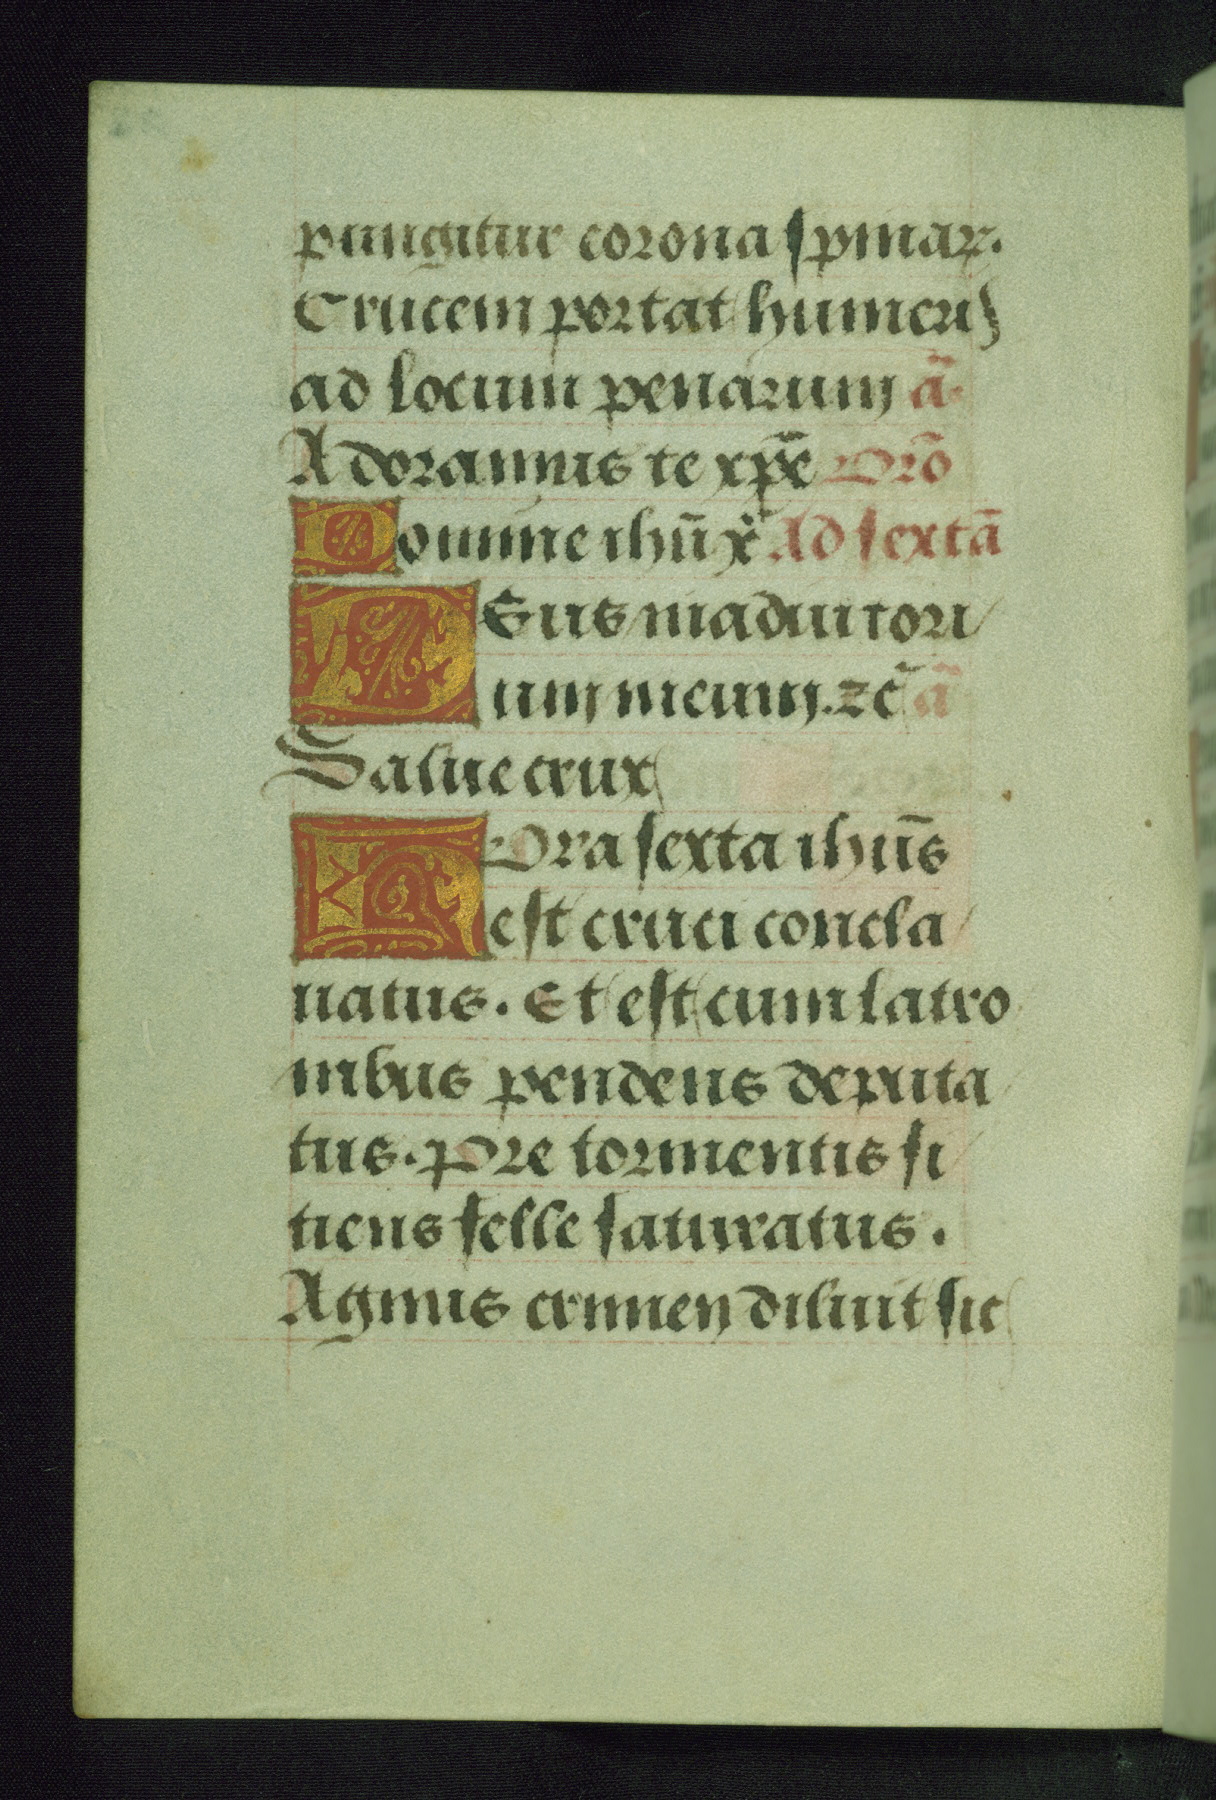 pungitur corona spinaꝝ.
Crucem portat humeris
ad locum penarum ā.
Adoramus te xp̄e Orō
Domine ihū x̄ Ad sextā
DEus in adiutori
um meum. ⁊c̄ ā
Salue crux
HOra sexta ihūs
est cruci concla
uatus. Et est cum latro
nibus pendens deputa
tus. Pre tormentis si
tiens felle saturatus.
Agnus crimen diluit sic